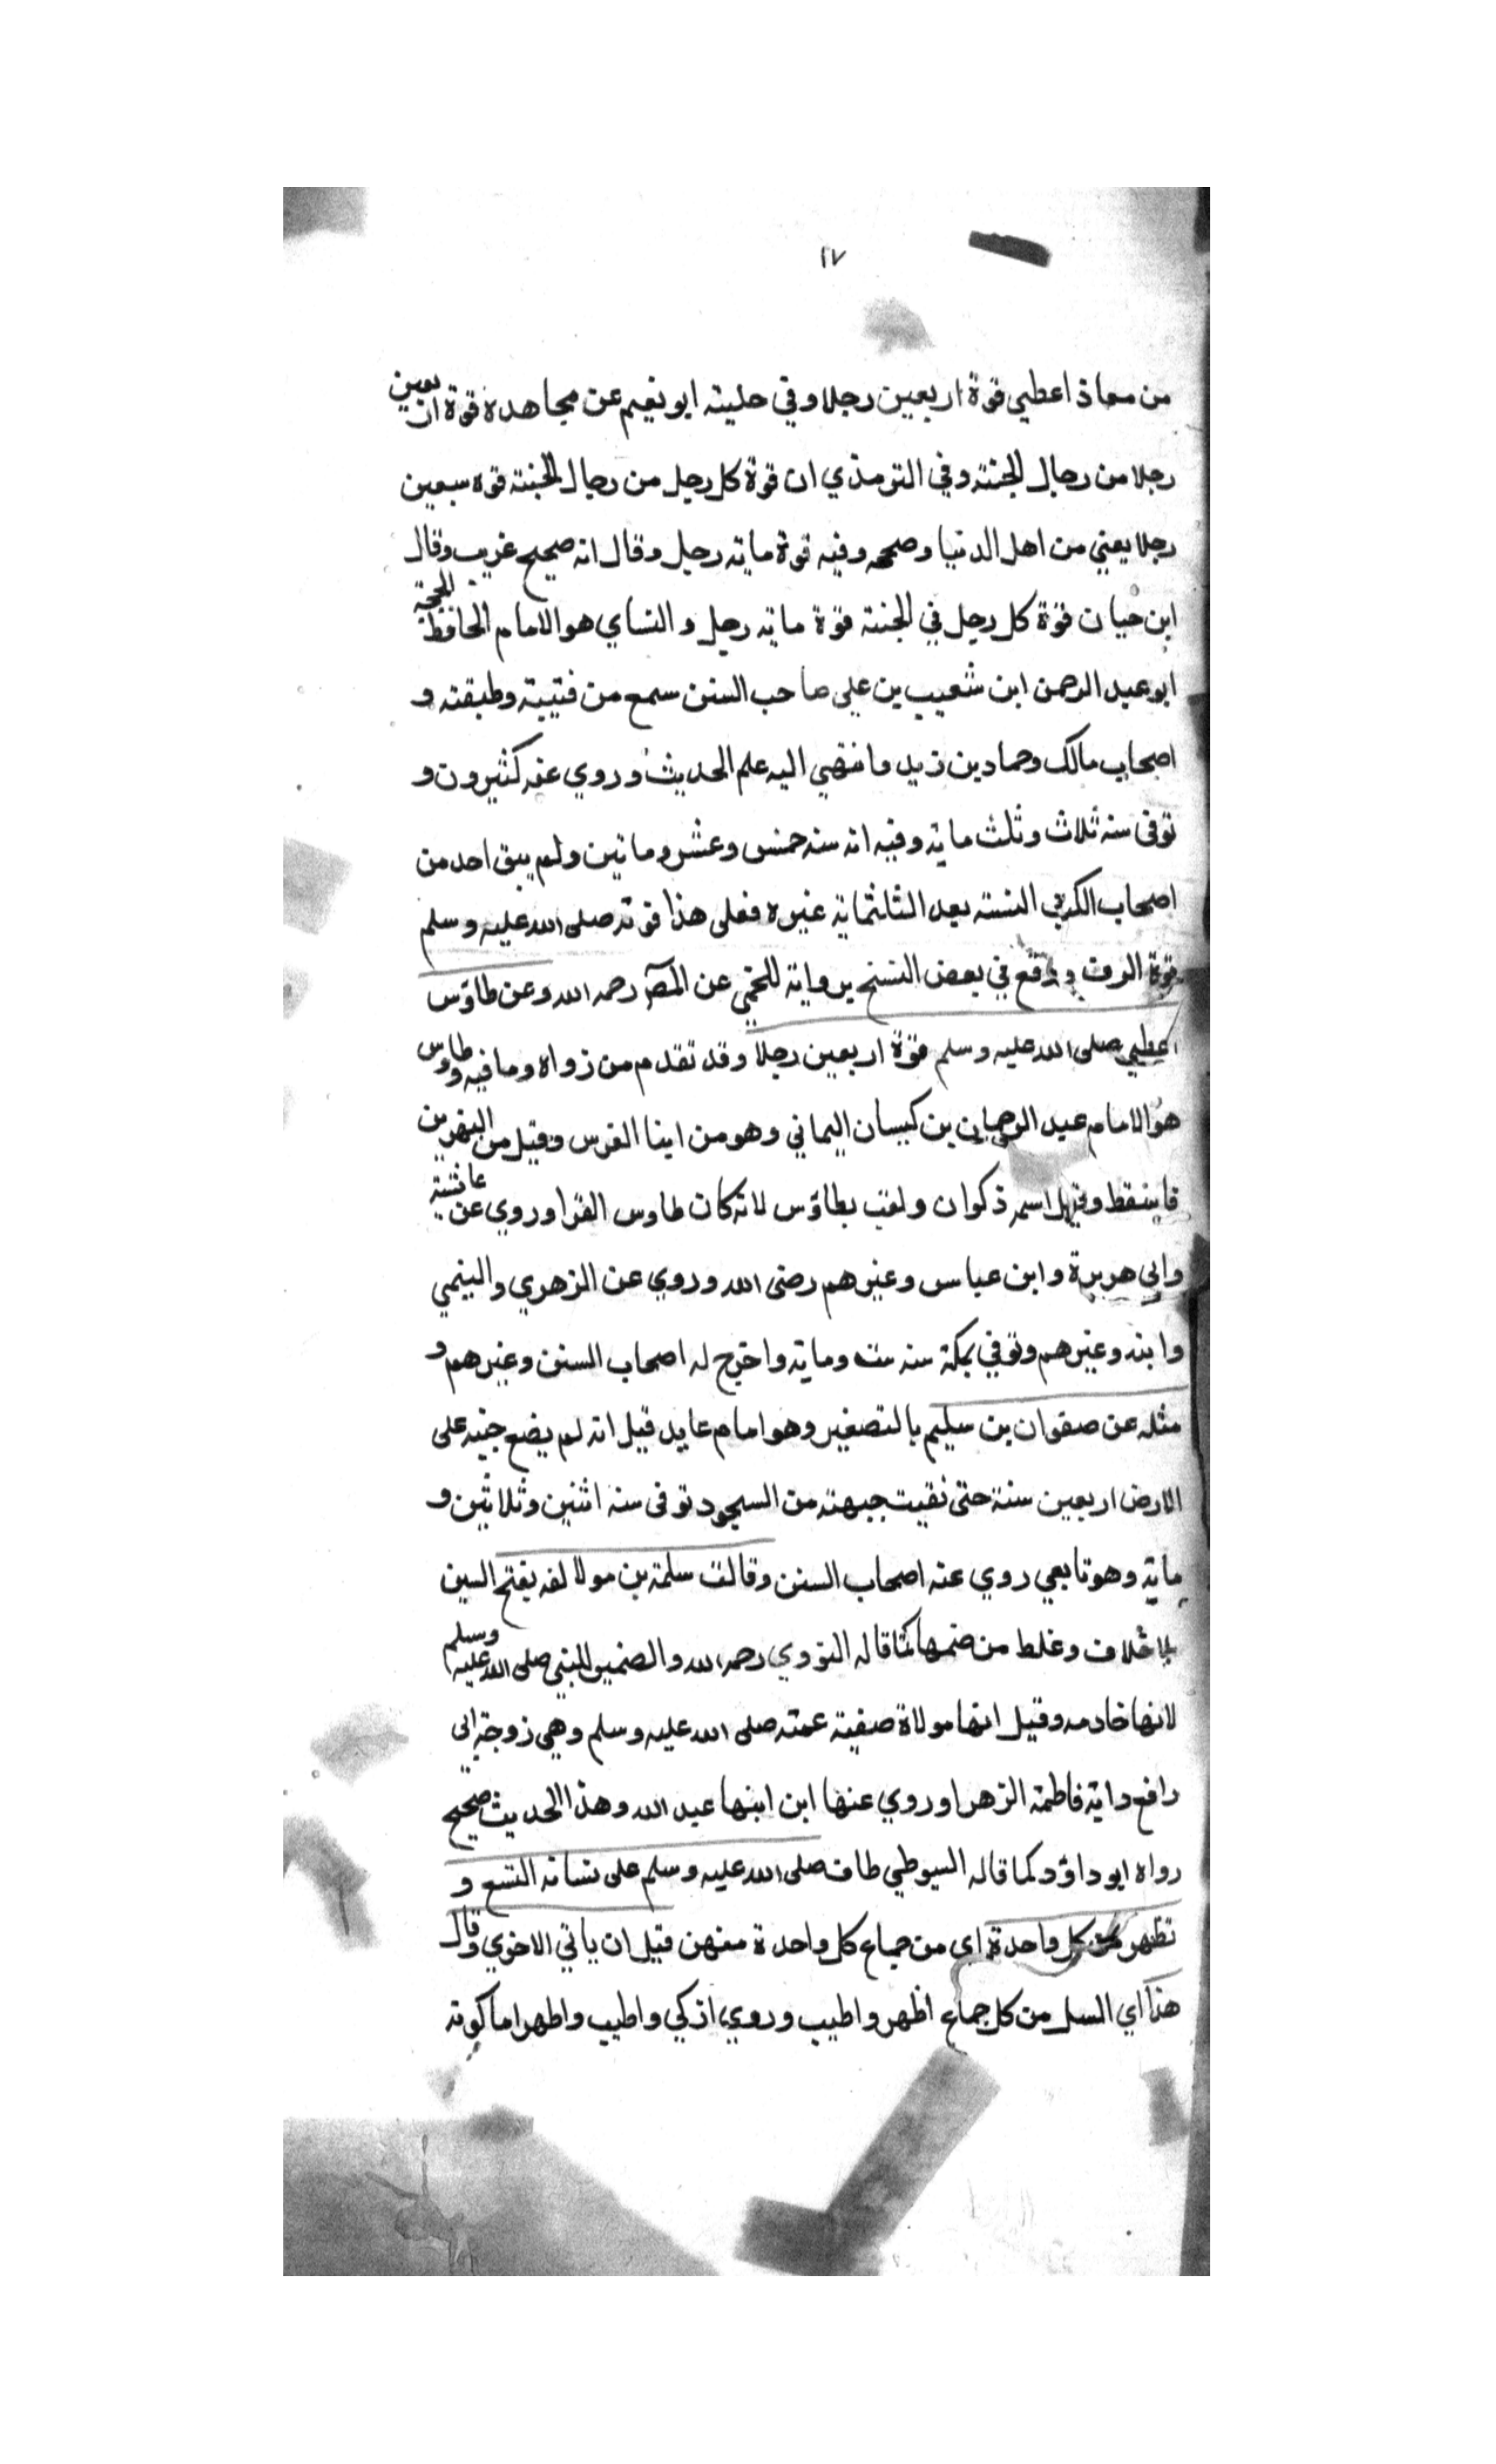 ١٧
من معاذ اعطي قوة اربعين رجلا وفي حلية ابو نعيم عن مجاهد ة قوة اربعين
رجلا من رجال الجنة وفي الترمذي ان قوة كل رجل من رجال الجنة قوة سبعين
رجلا يعني من اهل الدنيا وصححه وفيه قوة ماية رجل وقال انه صحيح غريب وقال
ابن حيان قوة كل رجل في الجنة قوة ماية رجل و النساي هو الامام الحافظ الحجة
ابو عبد الرحمن ابن شعيب بن علي صاحب السنن سمع من قتيبة وطبقته و
اصحاب مالك وحماد بن زيد وانتهي اليه علم الحديث وروي عنه كثيرون و
توفى سنة ثلاث وثلث ماية وفيه انه سنة خمس وعشر وماتين ولم يبق احد من
اصحاب الكتب الستة بعد الثلثماية غيره فعلى هذا قوته صلى الله عليه وسلم
قوة الوف ووقع في بعض النسخ برواية للخمي عن المص رحمه الله وعن طاوس
اعطي صلى الله عليه وسلم قوة اربعين رجلا وقد تقدم من رواه وما فيه وطاوس
هو الامام عبد الرحمان بن كيسان اليماني وهو من ابنا الفرس وقيل من النهر بن
قاسقط وقيل اسمه ذكوان ولقب بطاوس لانه كان طاوس القرا وروي عن عائشة
وابي هريرة وابن عباس وغيرهم رضى الله وروي عن الزهري والتيمي
وابنه وغيرهم وتوفي بمكة سنة ست وماية واخرج له اصحاب السنن وغيرهم و
مثله عن صفوان بن سليم بالتصغير وهو امام عابد قيل انه لم يضع جنبه على
الارض اربعين سنة حتى نقبت جبهته من السجود توفى سنة اثنين وثلاثين و
ماية وهو تابعي روي عنه اصحاب السنن وقالت سلمة بن مولا لفه بفتح السين
بلا خلاف وغلط من ضمها كما قاله النووي رحمه الله والضمير للنبي صلى الله عليه وسلم
لانها خادمه وقيل انها مولاة صفية عمته صلى الله عليه وسلم وهي زوجة ابى
رافع داية فاطمة الزهرا وروي عنها ابن ابنها عبد الله وهذا الحديث صحيح
رواه ابو داود كما قاله السيوطي طاف صلى الله عليه وسلم على نسائه التسع و
تطهر من كل واحدة اي من جماع كل واحدة منهن قبل ان ياتي الاخري وقال
هذا اي الغسل من كل جماع اطهر واطيب وروي ازكي واطيب واطهر اما كونه